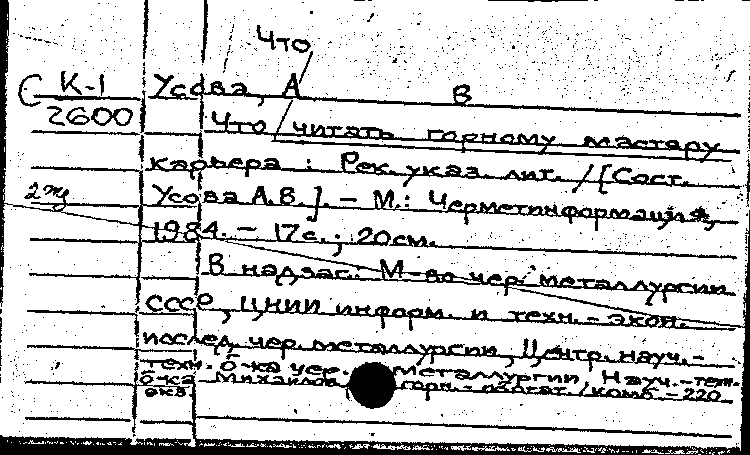 Что
К-1 Усова, А В
2600 Что читать горному мастеру
карьера : Рек. указ. лит. / [Сост.
2 Усова А.В.]. — М.: Черметинформация,
1984. — 17с.; 20см.
В надзаг.: М-во чер. металлургии
СССР, ЦНИИ информ. и техн.-экон.
исслед. чер. металлургии, Центр. науч.-
техн. б-ка чер. металлургии, Науч.-техн.
б-ка Михайлов. горн.- обогат. комб. — 220
экз.